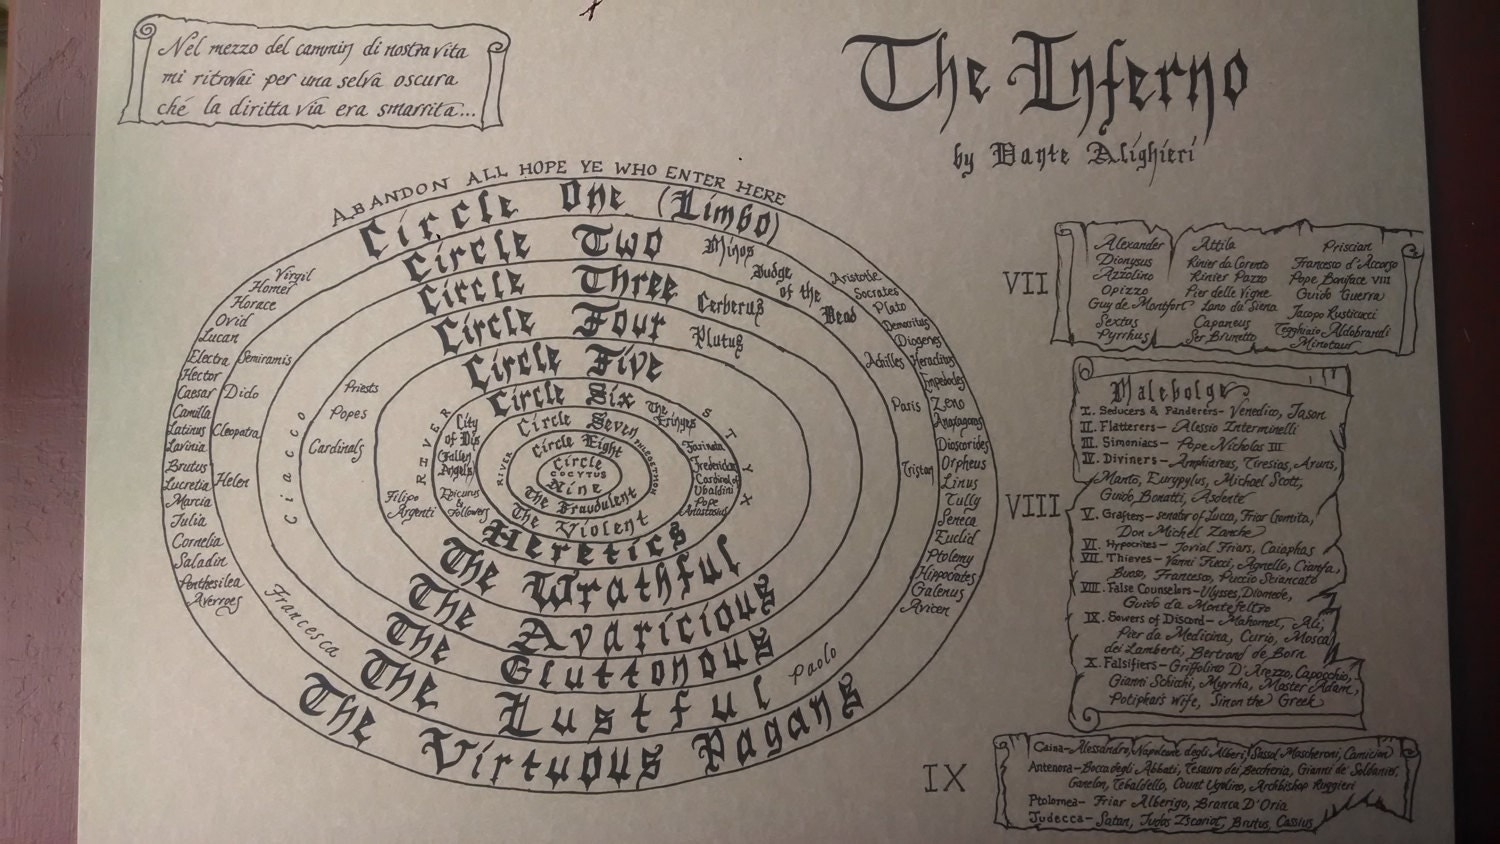 Nel mezzo del cammin di nostra vita
mi ritrovai per una selva oscura
ché la diritta via era smarrita...
The Inferno
by Dante Alighieri
ABANDON ALL HOPE YE WHO ENTER HERE
Circle One (Limbo)
Circle Two
Minos
Judge
of the
Dead
Circle Three
Cerberus
Circle Four
Plutus
Circle Five
Circle Six
Circle Seven
Circle Eight
Circle
COCYTUS
Nine
The Fraudulent
The Violent
Heretics
The Wrathful
The Avaricious
The Gluttonous
The Lustful
The Virtuous Pagans
Virgil
Homer
Horace
Ovid
Lucan
Electra
Hector
Caesar
Camilla
Latinus
Lavinia
Brutus
Lucretia
Marcia
Julia
Cornelia
Saladin
Penthesilea
Averroes
Semiramis
Dido
Cleopatra
Helen
Francesca
Paolo
Ciacco
Priests
Popes
Cardinals
Filipo
Argenti
RIVER
STYX
City
of Dis
(Fallen
Angels)
Epicurus
&
Followers
The
Erinyes
Farinata
Frederick
Cardinal
Ubaldini
Pope
Anastasius
RIVER
PHLEGETHON
Aristotle
Socrates
Plato
Democritus
Diogenes
Heraclitus
Empedocles
Zeno
Anaxagoras
Dioscorides
Orpheus
Linus
Tully
Seneca
Euclid
Ptolemy
Hippocrates
Galenus
Avicen
Achilles
Paris
Tristan
VII
Alexander
Dionysus
Azzolino
Opizzo
Guy de Montfort
Sextus
Pyrrhus
Attila
Rinier da Corneto
Rinier Pazzo
Pier delle Vigne
Lano da Siena
Capaneus
Ser Brunetto
Priscian
Francesco d'Accorso
Pope Boniface VIII
Guido Guerra
Jacopo Rusticucci
Tegghiaio Aldobrandi
Minotaur
VIII
Malebolge
I. Seducers & Panderers- Venedico, Jason
II. Flatterers- Alessio Interminelli
III. Simoniacs- Pope Nicholas III
IV. Diviners- Amphiareus, Tiresias, Aruns,
Manto, Eurypylus, Michael Scott,
Guido Bonatti, Asdente
V. Grafters- senator of Lucca, Friar Gomita,
Don Michel Zanche
VI. Hypocrites- Jovial Friars, Caiaphas
VII. Thieves- Vanni Fucci, Agnello, Cianfa,
Buoso, Francesco, Puccio Sciancato
VIII. False Counselors- Ulysses, Diomede,
Guido da Montefeltro
IX. Sowers of Discord- Mahomet, Ali,
Pier da Medicina, Curio, Mosca
dei Lamberti, Bertrand de Born
X. Falsifiers- Griffolino D'Arezzo, Capocchio,
Gianni Schicchi, Myrrha, Master Adam,
Potiphar's Wife, Sinon the Greek
IX
Caina- Alessandro, Napoleone degli Alberti, Sassol Mascheroni, Camicion
Antenora- Bocca degli Abbati, Tesauro dei Beccheria, Gianni de' Soldanier,
Ganelon, Tebaldello, Count Ugolino, Archbishop Ruggieri
Ptolomea- Friar Alberigo, Branca D'Oria
Judecca- Satan, Judas Iscariot, Brutus, Cassius